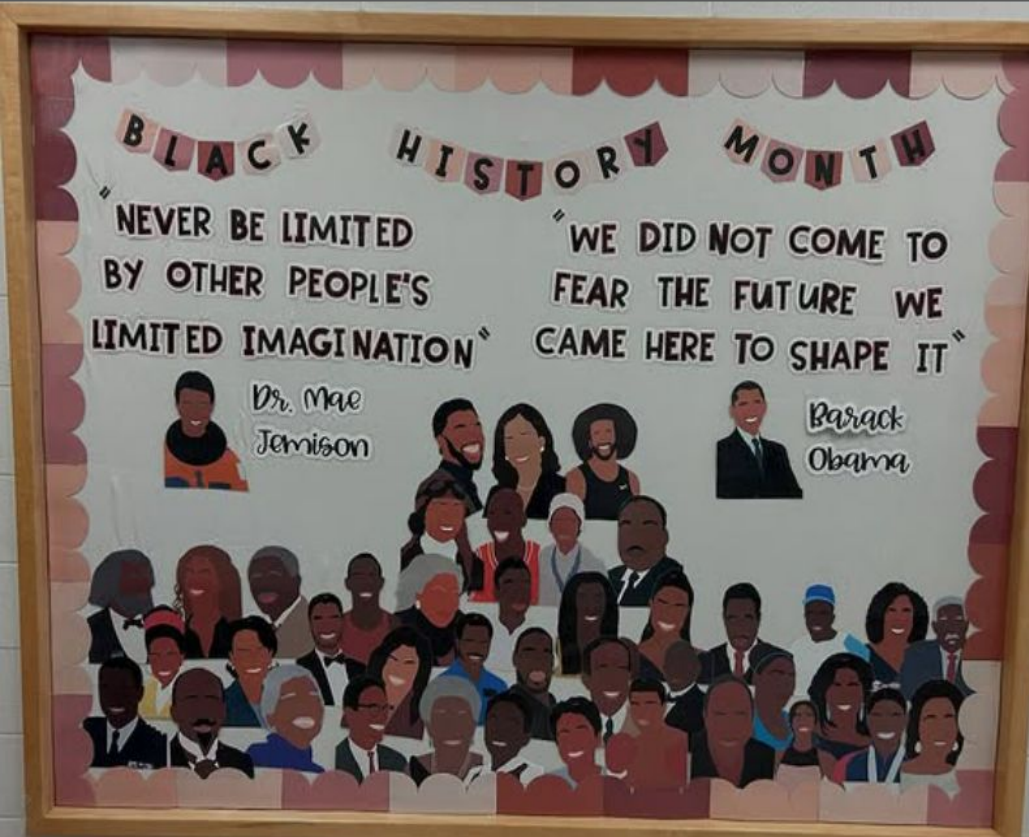 BLACK HISTORY MONTH
"NEVER BE LIMITED
BY OTHER PEOPLE'S
LIMITED IMAGINATION"
Dr. Mae
Jemison
"WE DID NOT COME TO
FEAR THE FUTURE WE
CAME HERE TO SHAPE IT"
Barack
Obama